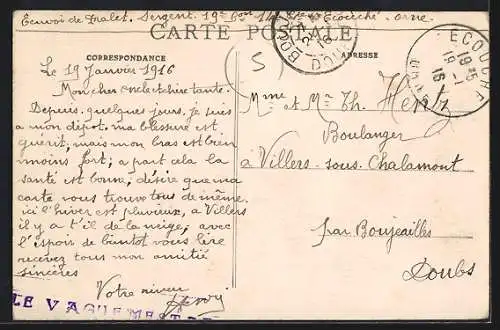 Envoi de Pralet. Sergent. 19e Cie 14 Ecouché - orne
CARTE POSTALE
CORRESPONDANCE
ADRESSE
Le 19 Janvier 1916
Mon cher oncle et chère tante.
Depuis quelques jours, je suis
a mon dépot. ma blessure est
guérit, mais mon bras est bien
moins fort; a part cela la
santé est bonne, désire que ma
carte vous trouve tous de même.
ici l'hiver est pluvieux, a Villers
il y a t'il de la neige, avec
l'espoir de bientôt vous lire
recevez tous mon amitié
sincères
Votre neveu
LE VAGUEMESTRE
(5)
Mme et Mr Th. Hentz
Boulanger
à Villers-sous-Chalamont
par Boujeailles
Doubs
ECOUCHÉ
19-1
16